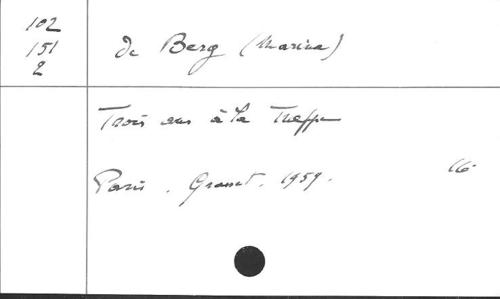 102
151
2
de Berg (Marina)
Trois ans à la Trappe
Paris. Grasset. 1959. 16